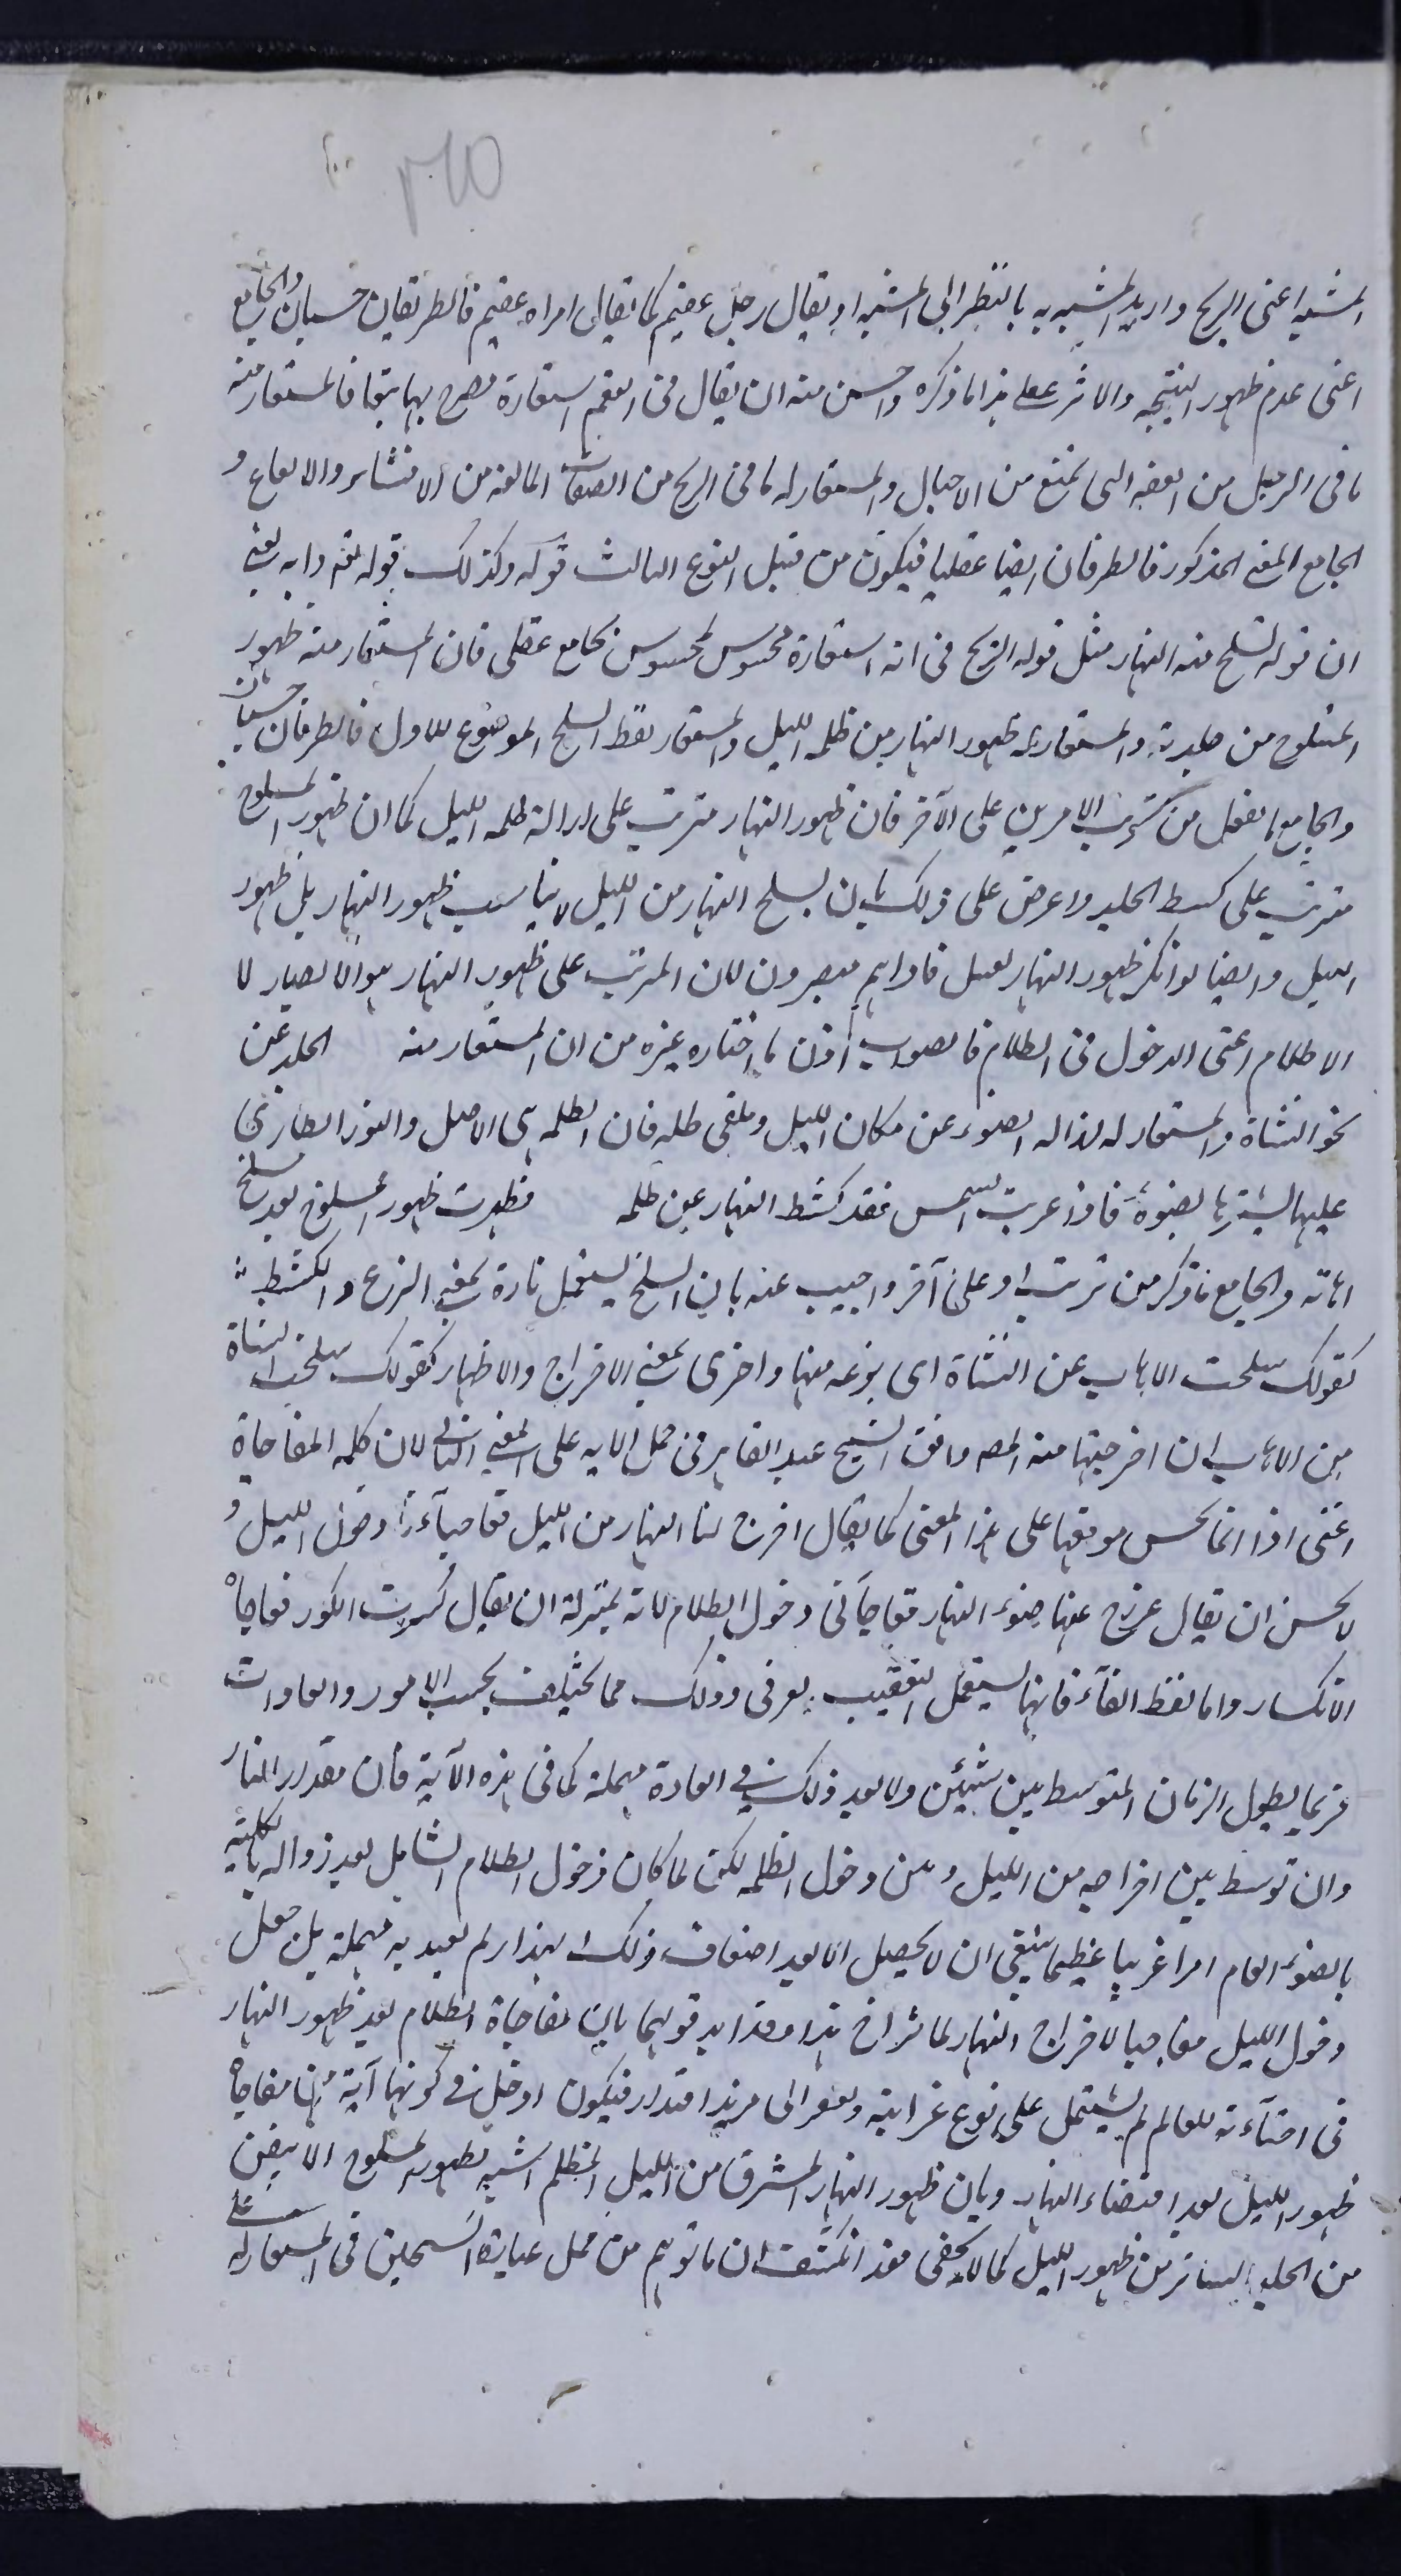 ٢٦٥
المشبه اعنى الريح واريد المشبه به بالنظر الى المشبه او يقال رجل عقيم كما يقال امراه عقيم فالطريقان حسيان والجامع
اعنى عدم ظهور النتيجه والاثر عقلى هذا ما ذكره واحسن منه ان يقال فى العقم استعارة مصرح بها تبعا فالمستعار منه
ما فى الرجل من الصفه التى تمنع من الاحبال والمستعار له ما فى الريح من الصفات المانعه من الانشاء والالقاح و
الجامع المعنى المذكور فالطرفان ايضا عقليا فيكون من قبيل النوع الثالث قوله وكذلك قوله تعم وايه يعنى
ان قوله نسلخ منه النهار مثل قوله الريح فى انه استعارة محسوس لمحسوس بجامع عقلى فان المستعار منه ظهور
المسلوخ من جلدته والمستعار له ظهور النهار من ظلمه الليل والمستعار لفظ السلخ الموضوع للاول فالطرفان حسيان
والجامع ما يعقل من ترتب الامرين على الآخر فان ظهور النهار مترتب على ازالة ظلمه الليل كما ان ظهور المسلوخ
مترتب على كشط الجلد واعرض على ذلك بان نسلخ النهار من الليل لا يناسب ظهور النهار بل ظهور
الليل وايضا لو انكر ظهور النهار لقيل فاذا هم مبصرون لان المرتب على ظهور النهار هو الابصار لا
الاظلام اعنى الدخول فى الظلام فالصواب اذن ما اختاره غيره من ان المستعار منه الجلد عن
نحو الشاة والمستعار له ازاله الضوء عن مكان الليل وملقى ظله فان الظلمه هى الاصل والنور الطارى
عليها يسترها بضوئه فاذا غربت الشمس فقد كشط النهار عن ظلمه فظهرت ظهور المسلوخ بعد سلخ
اهابه والجامع ما ذكر من ترتب امر على آخر واجيب عنه بان السلخ يستعمل تارة بمعنى النزع والكشط
كقولك سلخت الاهاب عن الشاة اى نزعه منها واخرى بمعنى الاخراج والاظهار كقولك سلخت الشاة
من الاهاب ان اخرجتها منه المصه وافق الشيخ عبد القاهر فى حمل الايه على المعنى الثانى لان كلمه المفاجاة
اعنى اذا انما تحسن موقعها على هذا المعنى كما يقال اخرج لنا النهار من الليل مفاجاءة دخول الليل و
لا يحسن ان يقال عرج عنها ضوء النهار مفاجآنى دخول الظلام لانه بمنزلة ان يقال كسرت الكوز مفاجاة
الانكسار واما لفظ الفآء فانها يستعمل التعقيب يعرفى وذلك مما يختلف بحسب الامور والعادات
فربما يطول الزمان المتوسط بين شيئين ولا يعد ذلك فى العادة مهملة كما فى هذه الآية فان مقدار النهار
وان توسط بين اخراجه من الليل وبين دخول الظلمه لكن لما كان دخول الظلام الشامل بعد زواله بالكلية
بالضوء العام امرا غريبا عظيما ينبغى ان لا يحصل الا بعد اضعاف ذلك المقدار لم يعد به مهملة بل جعل
دخول الليل مفاجيا لاخراج النهار لما تراخ هذا وقد ايد قولهما بان مفاجاة الظلام بعد ظهور النهار
فى اضآءته للعالم لم يشتمل على نوع غرابة ويفتقر الى مزيد اقتدار فيكون ادخل فى كونها آية منها مفاجاة
ظهور الليل بعد انقضاء النهار وبان ظهور النهار المشرق من الليل المظلم اشبه بظهور المسلوخ الابيض
من الجلد الساتر من ظهور الليل كما لا يخفى فقد انكشف ان ما توهم من حمل عبارة الشيخين فى المستعار له على